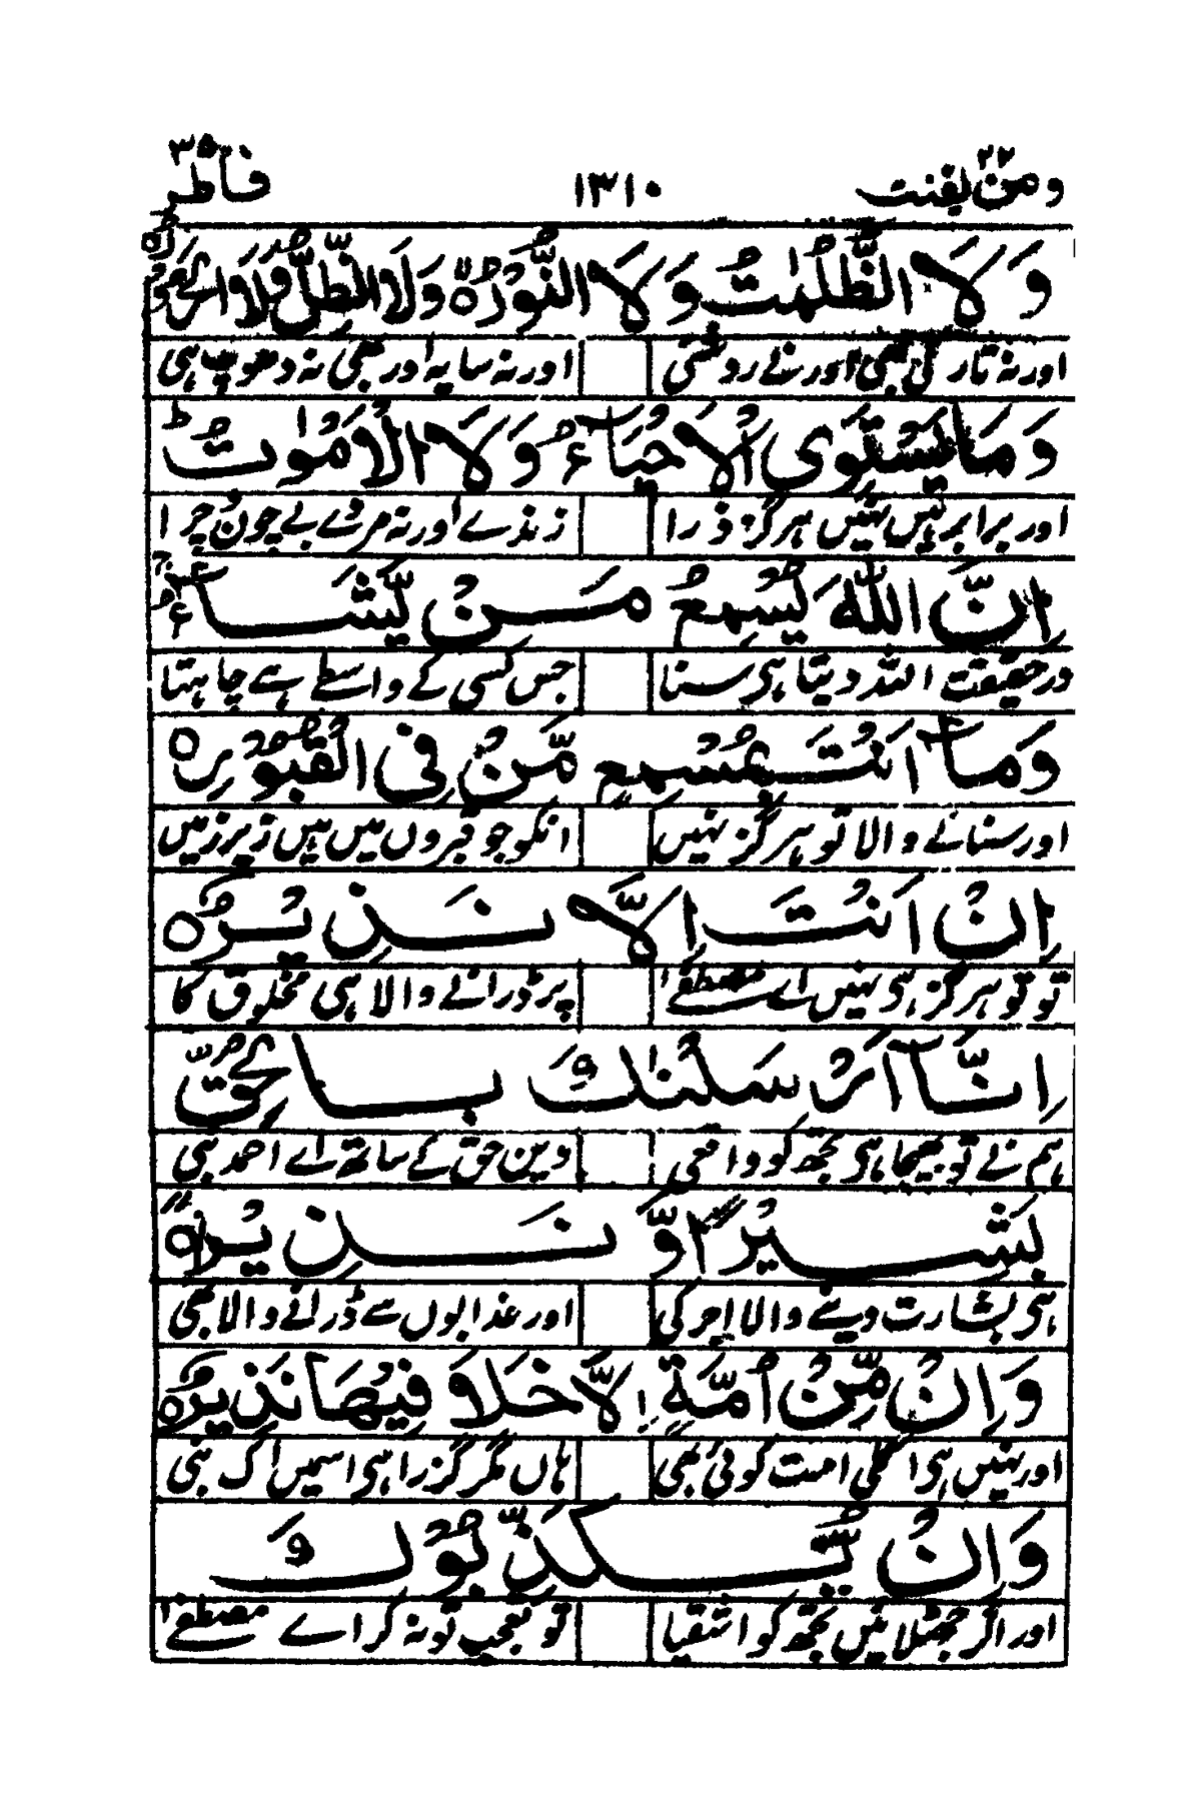 ومن یقنت ۲۲ ۱۳۱۰ فاطر ۳۵
وَلَا الظُّلُمٰتُ وَلَا النُّوْرُ ۙ وَلَا الظِّلُّ وَلَا الْحَرُوْرُ ۚ
اور نہ تاریکی بھی اور نے روشنی اور نہ سایہ اور بھی نہ دھوپ ہی
وَمَا یَسْتَوِی الْاَحْیَآءُ وَلَا الْاَمْوَاتُ ؕ
اور برابر ہیں نہیں ہرگز ذرا زندے اور نہ مردے بے چون چرا
اِنَّ اللّٰهَ یُسْمِعُ مَنْ یَّشَآءُ ۚ
درحقیقت اللہ دیتا ہی سنا جس کسی کے واسطے ہے چاہتا
وَمَآ اَنْتَ بِمُسْمِعٍ مَّنْ فِی الْقُبُوْرِ ○
اور سنانے والا تو ہرگز نہیں انکو جو قبروں میں ہیں زیر زمیں
اِنْ اَنْتَ اِلَّا نَذِیْرٌ ○
تو تو ہرگز ہی نہیں اے مصطفےٰ پر ڈرانے والا ہی مخلوق کا
اِنَّآ اَرْسَلْنٰكَ بِالْحَقِّ
ہم نے تو بھیجا ہی تجھ کو واقعی دین حق کے ساتھ اے احمد نبی
بَشِیْرًا وَّ نَذِیْرًا ؕ
ہی بشارت دینے والا اجر کی اور عذابوں سے ڈرانے والا بھی
وَاِنْ مِّنْ اُمَّةٍ اِلَّا خَلَا فِیْهَا نَذِیْرٌ ○
اور نہیں ہی اگلی امت کوئی بھی ہاں مگر گزرا ہی اسمیں اک نبی
وَاِنْ یُّكَذِّبُوْكَ
اور اگر جھٹلائیں تجھ کو اشقیا تو تعجب تو نہ کر اے مصطفےٰ